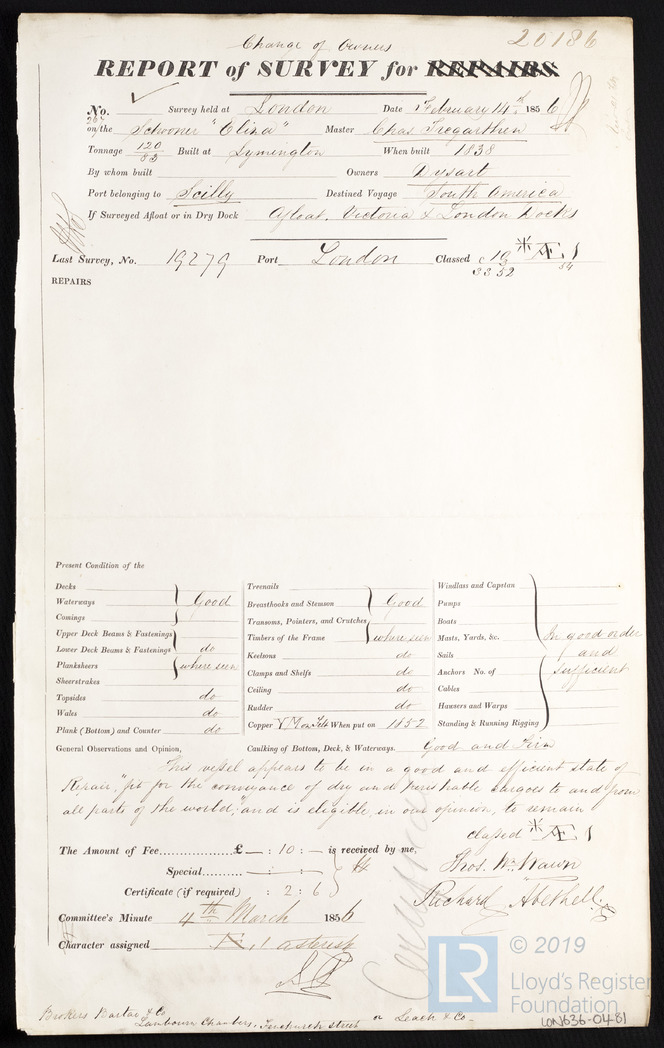 Change of Owners
20186
REPORT of SURVEY for REPAIRS
No. ✓ Survey held at London Date February 14th 1856
on the Schooner "Eliza" Master Chas Tregarthen
Tonnage 120/83 Built at Lymington When built 1838
By whom built Owners Dysart
Port belonging to Scilly Destined Voyage South America
If Surveyed Afloat or in Dry Dock Afloat, Victoria & London Docks
Last Survey, No. 19279 Port London Classed
33 52 54
REPAIRS
Present Condition of the
Decks
Waterways Good
Comings
Upper Deck Beams & Fastenings
Lower Deck Beams & Fastenings do
Planksheers where seen
Sheerstrakes
Topsides do
Wales do
Plank (Bottom) and Counter do
Treenails
Breasthooks and Stemson Good
Transoms, Pointers, and Crutches
Timbers of the Frame where seen
Keelsons do
Clamps and Shelfs do
Ceiling do
Rudder do
Copper Y M on Felt When put on 1852
Windlass and Capstan
Pumps
Boats
Masts, Yards, &c. In good order
Sails and
Anchors No. of sufficient
Cables
Hawsers and Warps
Standing & Running Rigging
General Observations and Opinion, Caulking of Bottom, Deck, & Waterways. Good and Firm
This vessel appears to be in a good and efficient state of
Repair, "fit for the conveyance of dry and perishable cargoes to and from
all parts of the world;" and is eligible, in our opinion, to remain
classed * Æ 1
The Amount of Fee £ — : 10 : — is received by me,
Special — : — : —
Certificate (if required) : 2 : 6
Thos. Wm. Nawn
Richard Abethell
Committee's Minute 4th March 1856
Character assigned Æ, 1 asterisk
Brokers Bartar & Co
Lambourn Chambers, Fenchurch Street or Leach & Co
LR
© 2019
Lloyd's Register
Foundation
LON636-0481